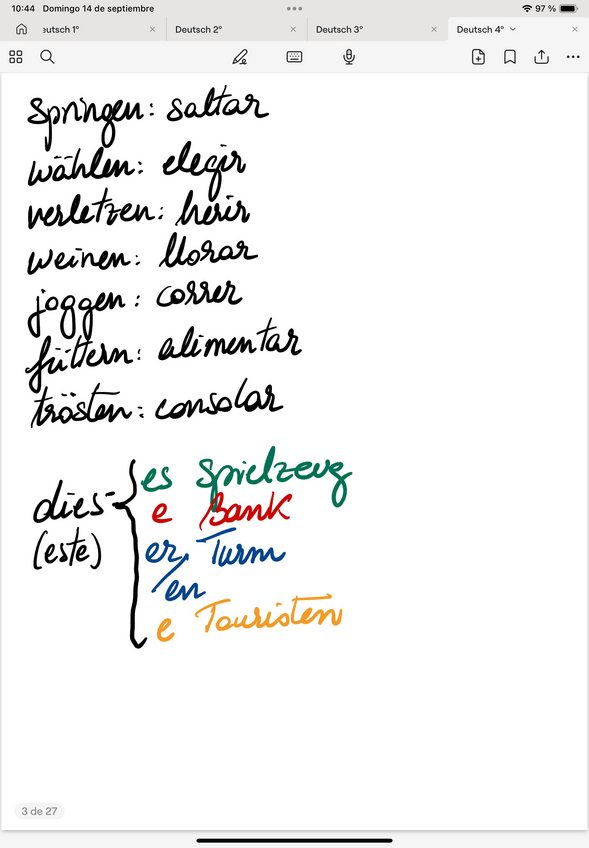 10:44 Domingo 14 de septiembre 97 %
eutsch 1° Deutsch 2° Deutsch 3° Deutsch 4°
springen: saltar
wählen: elegir
verletzen: herir
weinen: llorar
joggen: correr
füttern: alimentar
trösten: consolar
dies- es Spielzeug
(este) e Bank
er Turm
/en
e Touristen
3 de 27